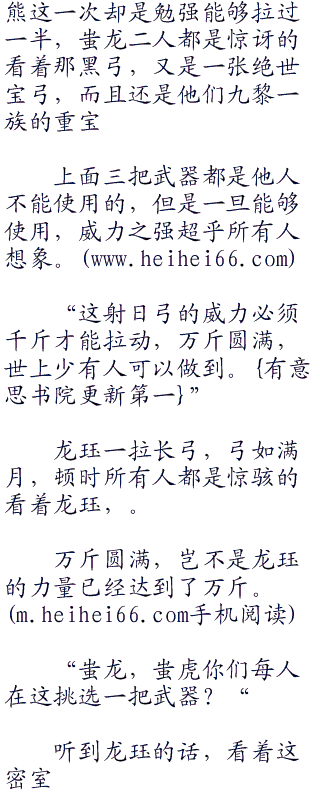 熊这一次却是勉强能够拉过
一半，蚩龙二人都是惊讶的
看着那黑弓，又是一张绝世
宝弓，而且还是他们九黎一
族的重宝
上面三把武器都是他人
不能使用的，但是一旦能够
使用，威力之强超乎所有人
想象。(www.heihei66.com)
“这射日弓的威力必须
千斤才能拉动，万斤圆满，
世上少有人可以做到。{有意
思书院更新第一}”
龙珏一拉长弓，弓如满
月，顿时所有人都是惊骇的
看着龙珏，。
万斤圆满，岂不是龙珏
的力量已经达到了万斤。
(m.heihei66.com手机阅读)
“蚩龙，蚩虎你们每人
在这挑选一把武器？“
听到龙珏的话，看着这
密室